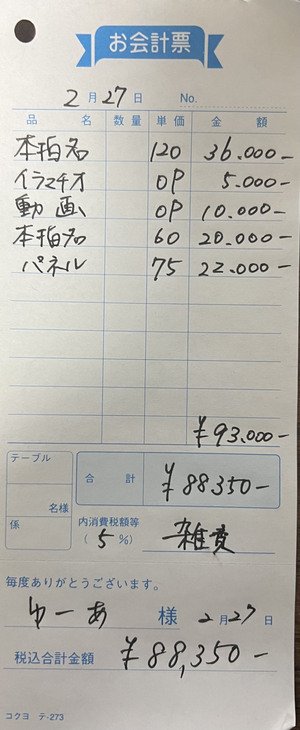 お会計票
2月27日 No.
品名 数量 単価 金額
本指名 120 36.000-
イラマチオ OP 5.000-
動画 OP 10.000-
本指名 60 20.000-
パネル 75 22.000-
¥93.000-
テーブル
名様
係
合計 ¥88350-
内消費税額等
(5%) 雑費
毎度ありがとうございます。
ゆーあ 様 2月27日
税込合計金額 ¥88,350-
コクヨ テ-273